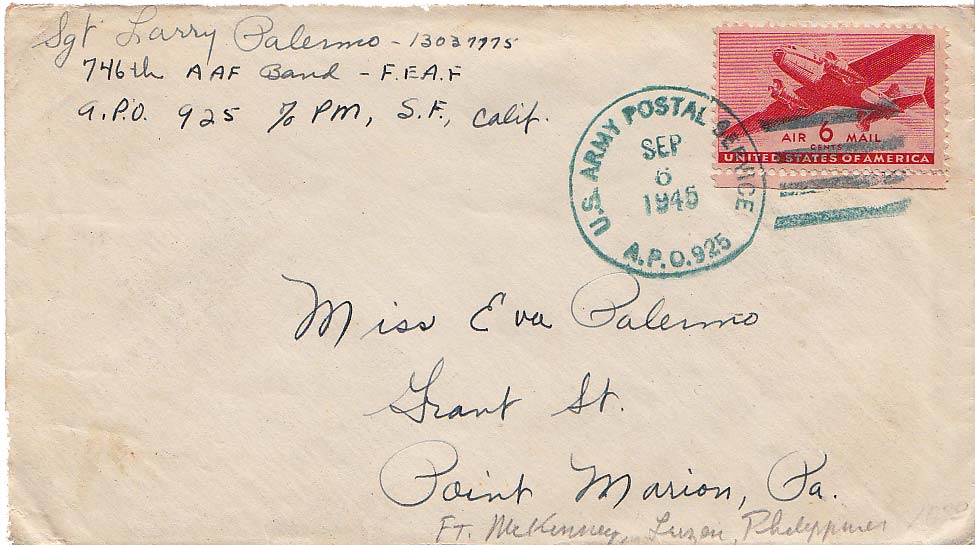 Sgt Larry Palermo - 13037775
746th AAF Band - F.E.A.F
A.P.O. 925 % PM, S.F., Calif.
U.S. ARMY POSTAL SERVICE
SEP
6
1945
A.P.O. 925
AIR 6 MAIL
CENTS
UNITED STATES OF AMERICA
Miss Eva Palermo
Grant St.
Point Marion, Pa.
FT. McKenney, Luzon, Philippines